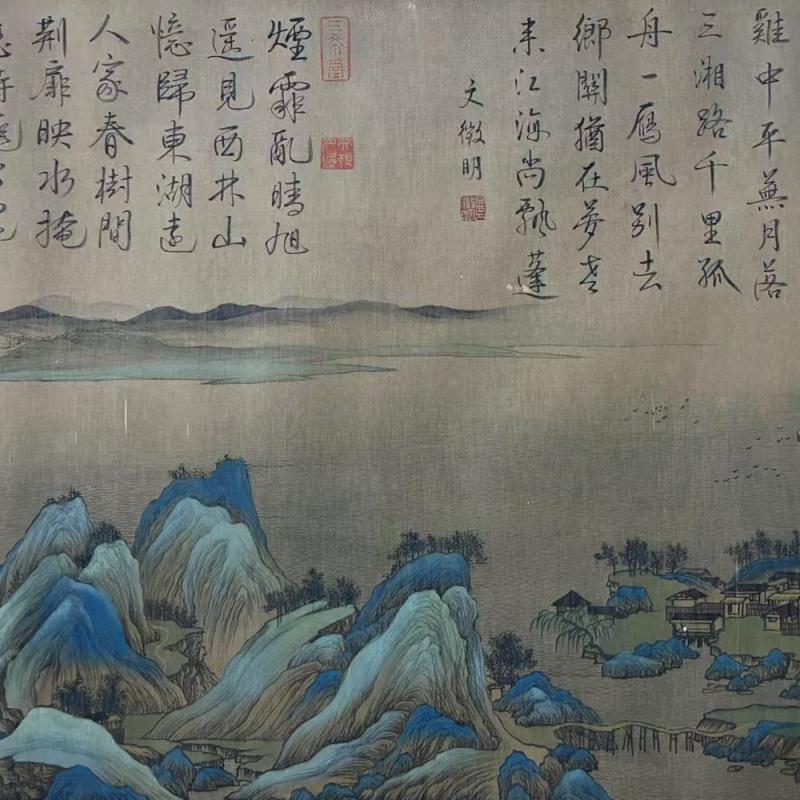 雞中平蕪月落
三湘路千里孤
舟一雁風別去
鄉關猶在夢老
来江海尚飄蓬
文徵明
三希堂
煙霏亂晴旭
遥見西林山
憶歸東湖遠
人家春樹間
荆扉映水掩